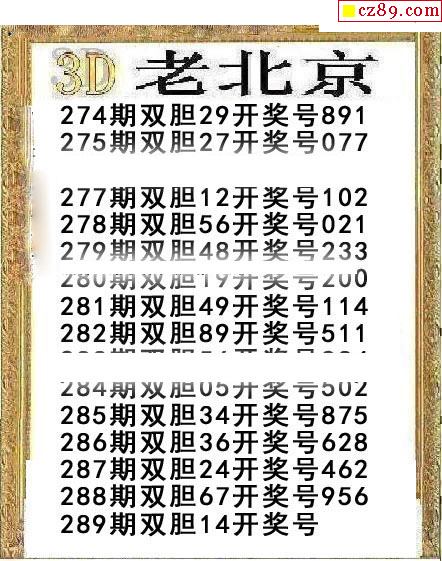 cz89.com
3D 老北京
274期双胆29开奖号891
275期双胆27开奖号077
277期双胆12开奖号102
278期双胆56开奖号021
279期双胆48开奖号233
280期双胆19开奖号200
281期双胆49开奖号114
282期双胆89开奖号511
284期双胆05开奖号502
285期双胆34开奖号875
286期双胆36开奖号628
287期双胆24开奖号462
288期双胆67开奖号956
289期双胆14开奖号